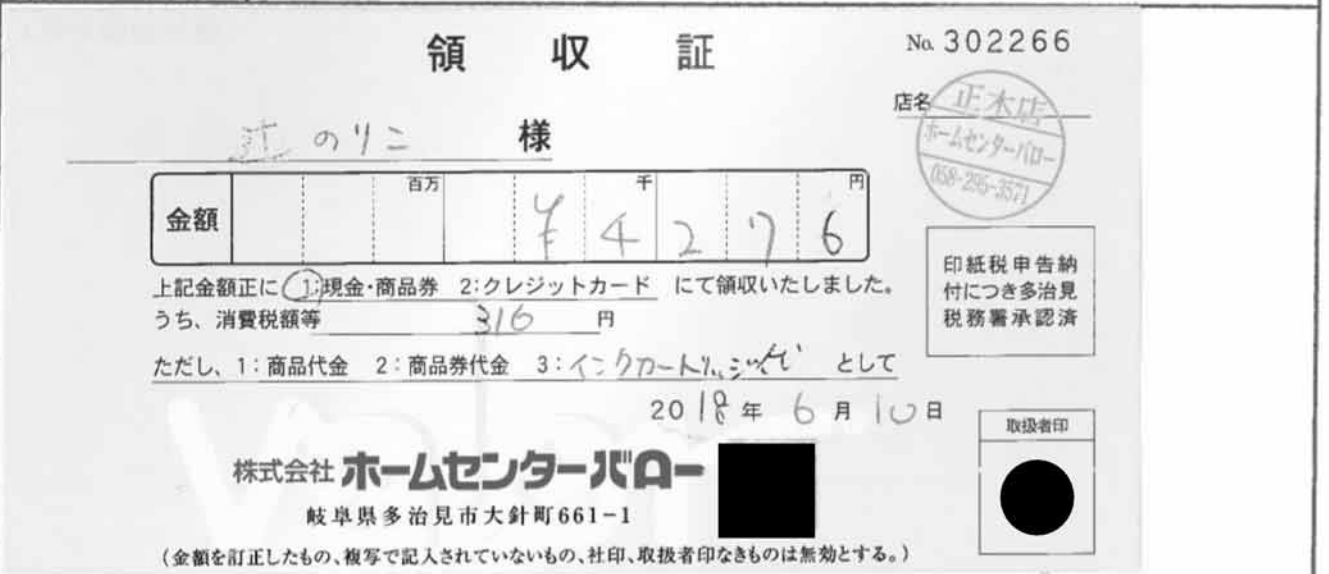 領収証
No. 302266
店名
正木店
ホームセンターバロー
058-295-3571
辻 のりこ 様
百万 千 円
金額 ¥4276
上記金額正に 1:現金・商品券 2:クレジットカード にて領収いたしました。
うち、消費税額等 316 円
印紙税申告納
付につき多治見
税務署承認済
ただし、1:商品代金 2:商品券代金 3:インクカートリッジ代 として
2018年 6月10日
取扱者印
株式会社 ホームセンターバロー
岐阜県多治見市大針町661-1
(金額を訂正したもの、複写で記入されていないもの、社印、取扱者印なきものは無効とする。)